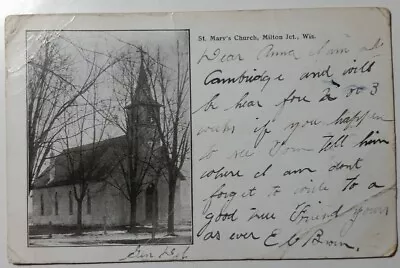 St. Mary's Church, Milton Jct., Wis.
Dear Anna I am at
Cambridge and will
be hear fore 2 or 3
weeks if you happen
to see Tom tell him
where I am dont
forget to write to a
good true Friend yours
as ever E C Brown.